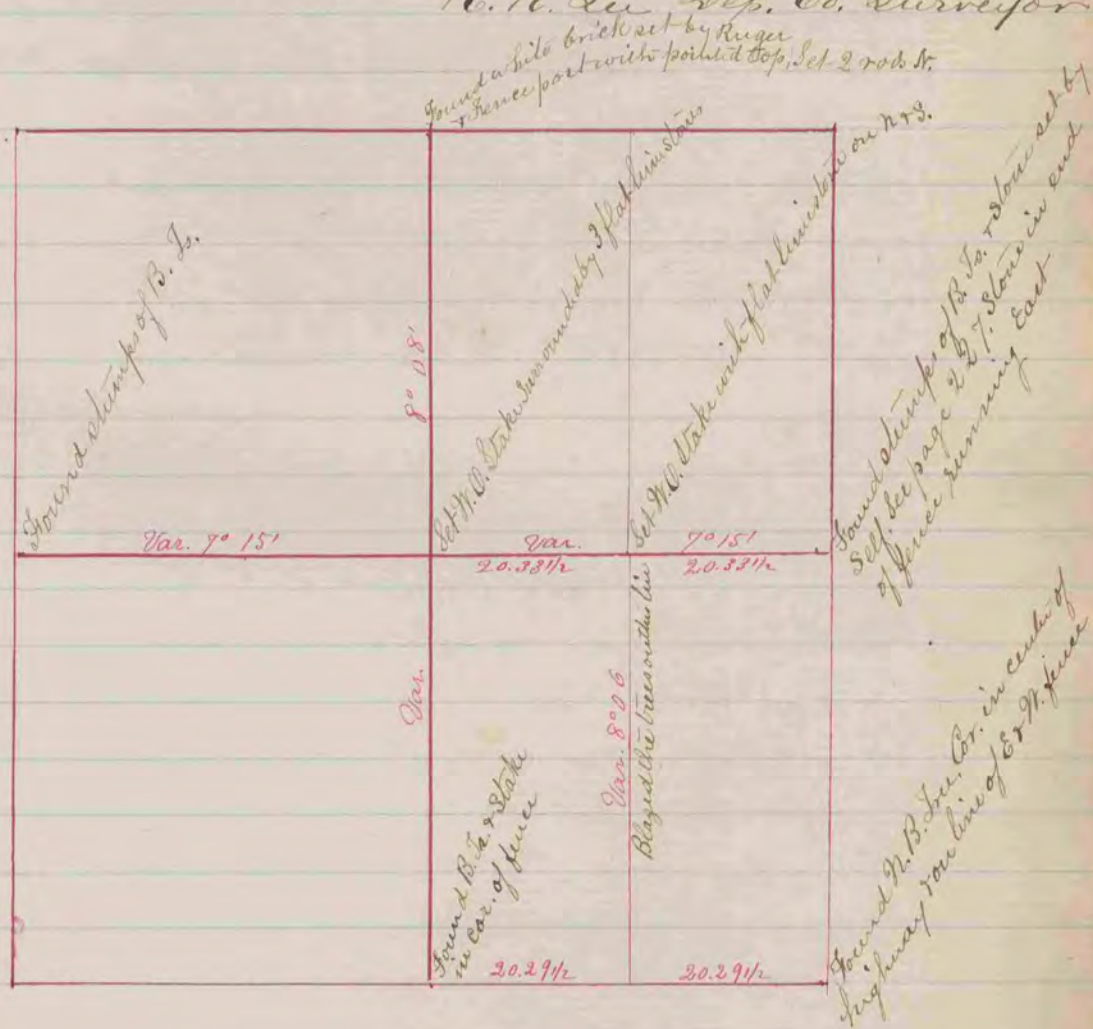 Dep. Co. Surveyor
Found white brick set by Ruger
& Fence post with pointed top, Set 2 rods N.
Found stumps of B. Ts.
8° 08'
Set W.O. Stake Surrounded by 3 flat limestones
Set W.O. Stake with flat limestone on N & S.
Found stumps of B. Ts. & stone set by
self. See page 227. Stone in end
of fence running East
Var. 7° 15'
Var. 7° 15'
20.33 1/2 20.33 1/2
Var.
Var. 8° 06
Blazed the trees on this line
Found B. Ts. & Stake
in cor. of fence
Found N. B. Tree. Cor. in center of
highway & on line of E & W. fence
20.29 1/2 20.29 1/2